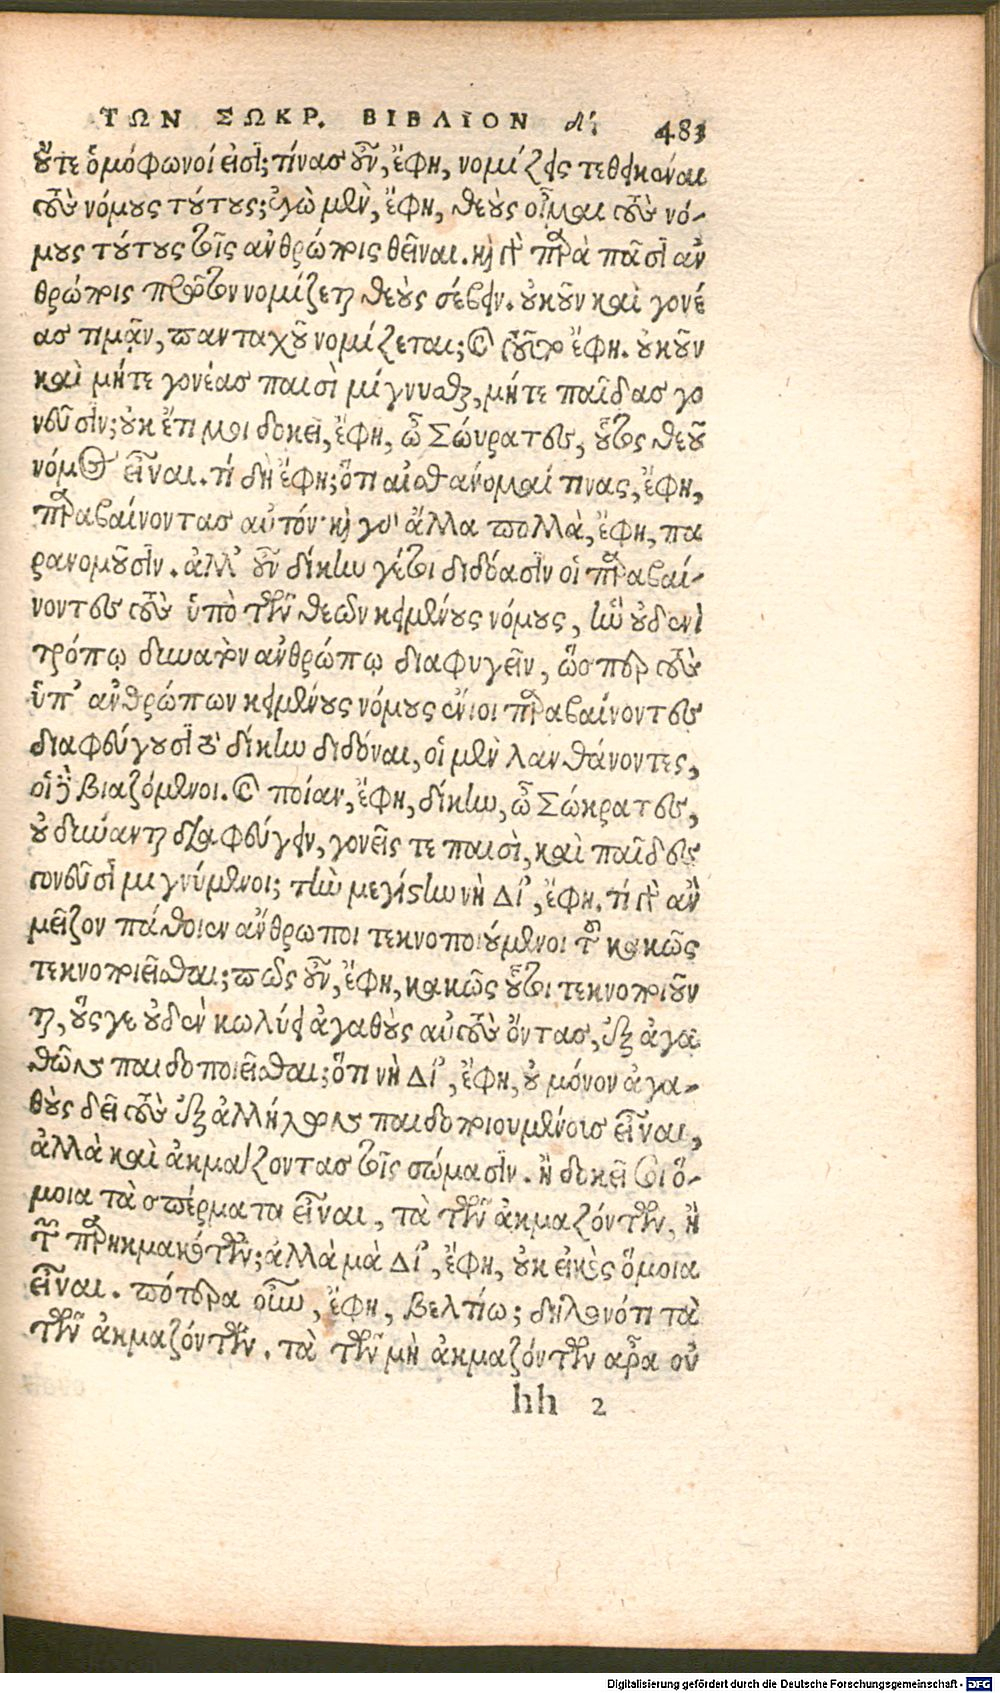 ΤΩΝ ΣΩΚΡ. ΒΙΒΛΙΟΝ δ'. 483
οὔτε ὁμόφωνοί εἰσι; τίνας οὖν, ἔφη, νομίζεις τεθεικέναι
τοὺς νόμους τούτους; ἐγὼ μὲν, ἔφη, θεοὺς οἶμαι τοὺς νό-
μους τούτους τοῖς ἀνθρώποις θεῖναι. καὶ γὰρ παρὰ πᾶσιν ἀν
θρώποις πρῶτον νομίζεται θεοὺς σέβειν. οὐκοῦν καὶ γονέ
ας τιμᾷν, πανταχοῦ νομίζεται; καὶ τοῦτο ἔφη. οὐκοῦν
καὶ μήτε γονέας παισὶ μίγνυσθαι, μήτε παῖδας γο
νεῦσιν; οὐκ ἔτι μοι δοκεῖ, ἔφη, ὦ Σώκρατες, οὗτος θεοῦ
νόμος εἶναι. τί δὴ ἔφη; ὅτι αἰσθάνομαί τινας, ἔφη,
παραβαίνοντας αὐτόν· καὶ γὰρ ἄλλα πολλὰ, ἔφη, πα
ρανομοῦσιν. ἀλλ' οὖν δίκην γέ τοι διδόασιν οἱ παραβαί-
νοντες τοὺς ὑπὸ τῶν θεῶν κειμένους νόμους, ἣν οὐδενὶ
τρόπῳ δυνατὸν ἀνθρώπῳ διαφυγεῖν, ὥσπερ τοὺς
ὑπ' ἀνθρώπων κειμένους νόμους ἔνιοι παραβαίνοντες
διαφεύγουσι τὸ δίκην διδόναι, οἱ μὲν λανθάνοντες,
οἱ δὲ βιαζόμενοι. καὶ ποίαν, ἔφη, δίκην, ὦ Σώκρατες,
οὐ δύνανται διαφεύγειν, γονεῖς τε παισὶ, καὶ παῖδες
γονεῦσι μιγνύμενοι; τὴν μεγίστην νὴ Δί', ἔφη. τί γὰρ ἂν
μεῖζον πάθοιεν ἄνθρωποι τεκνοποιούμενοι τοῦ κακῶς
τεκνοποιεῖσθαι; πῶς οὖν, ἔφη, κακῶς οὗτοι τεκνοποιοῦν
ται, οὕς γε οὐδὲν κωλύει ἀγαθοὺς αὐτοὺς ὄντας, ἐξ ἀγα
θῶν παιδοποιεῖσθαι; ὅτι νὴ Δί', ἔφη, οὐ μόνον ἀγα-
θοὺς δεῖ τοὺς ἐξ ἀλλήλων παιδοποιουμένοις εἶναι,
ἀλλὰ καὶ ἀκμάζοντας τοῖς σώμασιν. ἢ δοκεῖ σοι ὅ-
μοια τὰ σπέρματα εἶναι, τὰ τῶν ἀκμαζόντων, ἢ
τῶν παρηκμακότων; ἀλλὰ μὰ Δί', ἔφη, οὐκ εἰκὸς ὅμοια
εἶναι. πότερα οὖν, ἔφη, βελτίω; δηλονότι τὰ
τῶν ἀκμαζόντων. τὰ τῶν μὴ ἀκμαζόντων ἆρα οὐ
hh 2
Digitalisierung gefördert durch die Deutsche Forschungsgemeinschaft - DFG